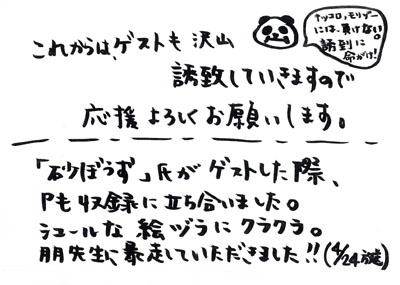 これからは、ゲストも沢山
誘致していきますので
応援よろしくお願いします。
キッコロ,モリゾー
には、負けない。
誘致に
命がけ!
「砂ぼうず」氏がゲストした際、
Pも収録に立ち合いました。
シュールな絵ヅラにクラクラ。
朋先生に暴走していただきました!!(4/24放送)